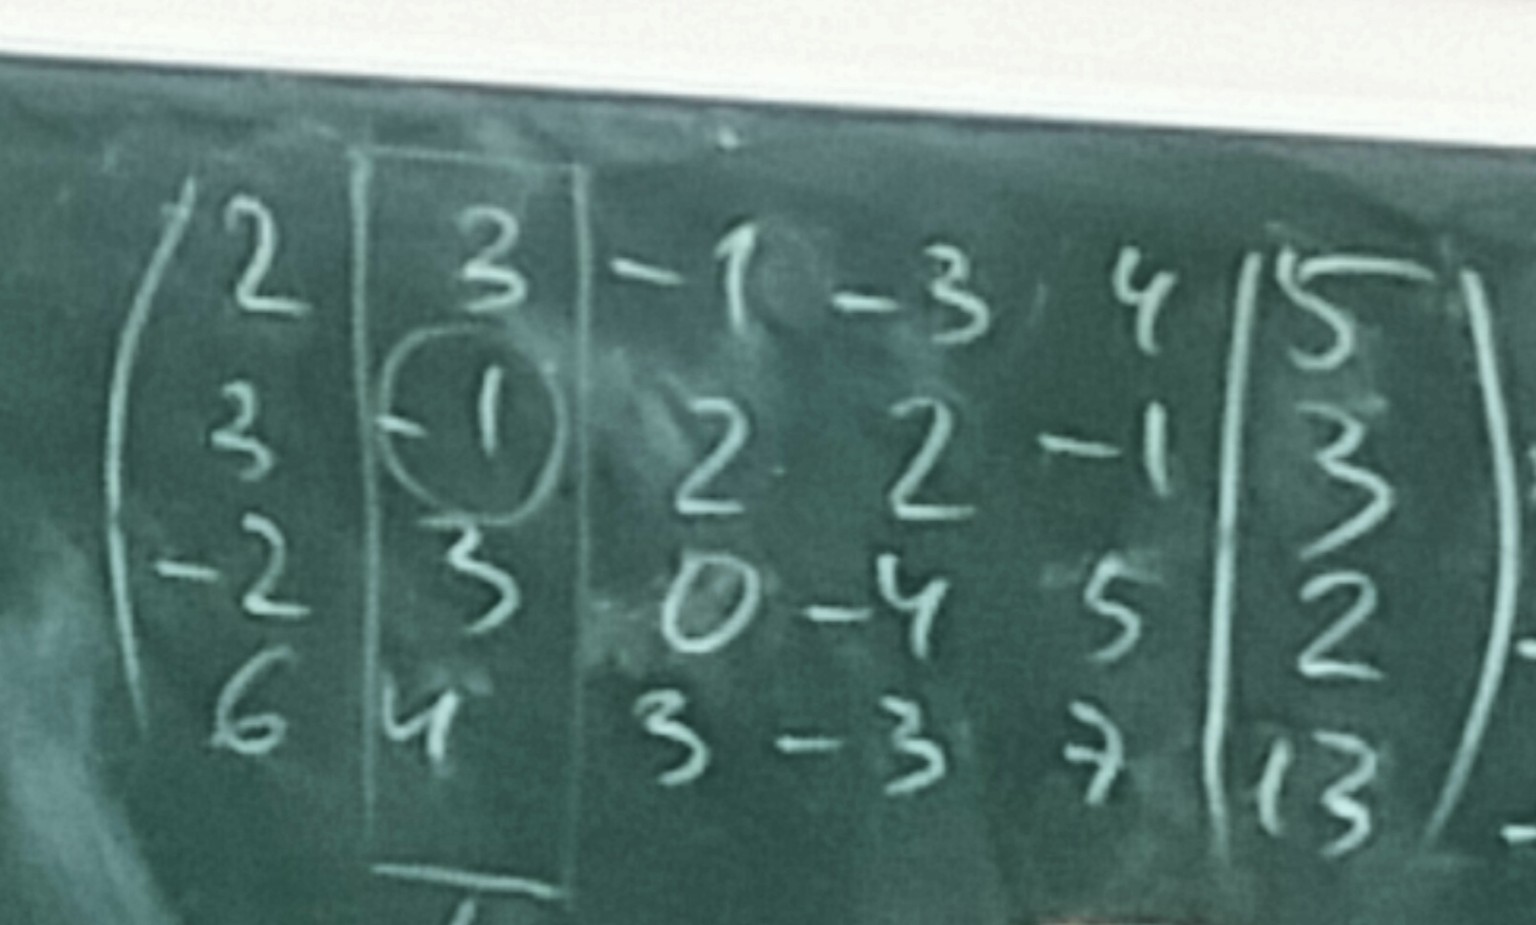 2 3 -1 -3 4 | 5
3 -1 2 2 -1 | 3
-2 3 0 -4 5 | 2
6 4 3 -3 7 | 13